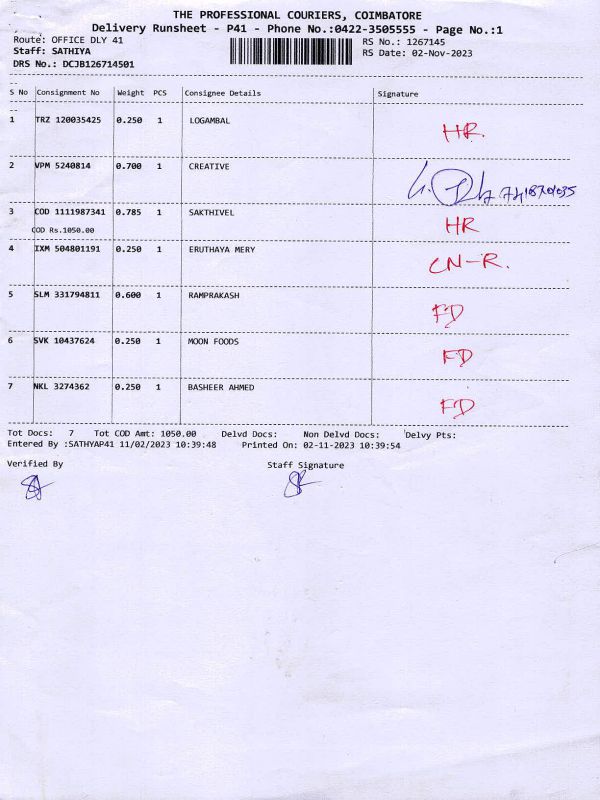 THE PROFESSIONAL COURIERS, COIMBATORE
Delivery Runsheet - P41 - Phone No.:0422-3505555 - Page No.:1
Route: OFFICE DLY 41 RS No.: 1267145
Staff: SATHIYA RS Date: 02-Nov-2023
DRS No.: DCJB126714501
S No Consignment No Weight PCS Consignee Details Signature
1 TRZ 120035425 0.250 1 LOGAMBAL HR
2 VPM 5240814 0.700 1 CREATIVE
3 COD 1111987341 0.785 1 SAKTHIVEL HR
COD Rs.1050.00
4 IXM 504801191 0.250 1 ERUTHAYA MERY CN-R.
5 SLM 331794811 0.600 1 RAMPRAKASH FD
6 SVK 10437624 0.250 1 MOON FOODS FD
7 NKL 3274362 0.250 1 BASHEER AHMED FD
Tot Docs: 7 Tot COD Amt: 1050.00 Delvd Docs: Non Delvd Docs: Delvy Pts:
Entered By :SATHYAP41 11/02/2023 10:39:48 Printed On: 02-11-2023 10:39:54
Verified By Staff Signature